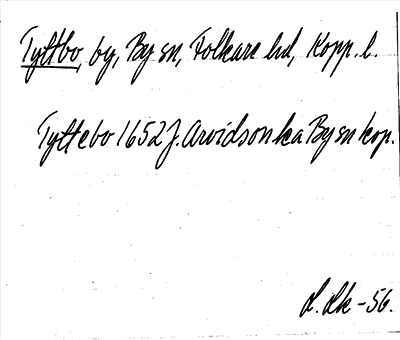 Tyttbo, by, By sn, Folkare hd, Kopp. l.
Tyttebo 1652 J. Arvidson ka By sn kop.
L. Lk -56.